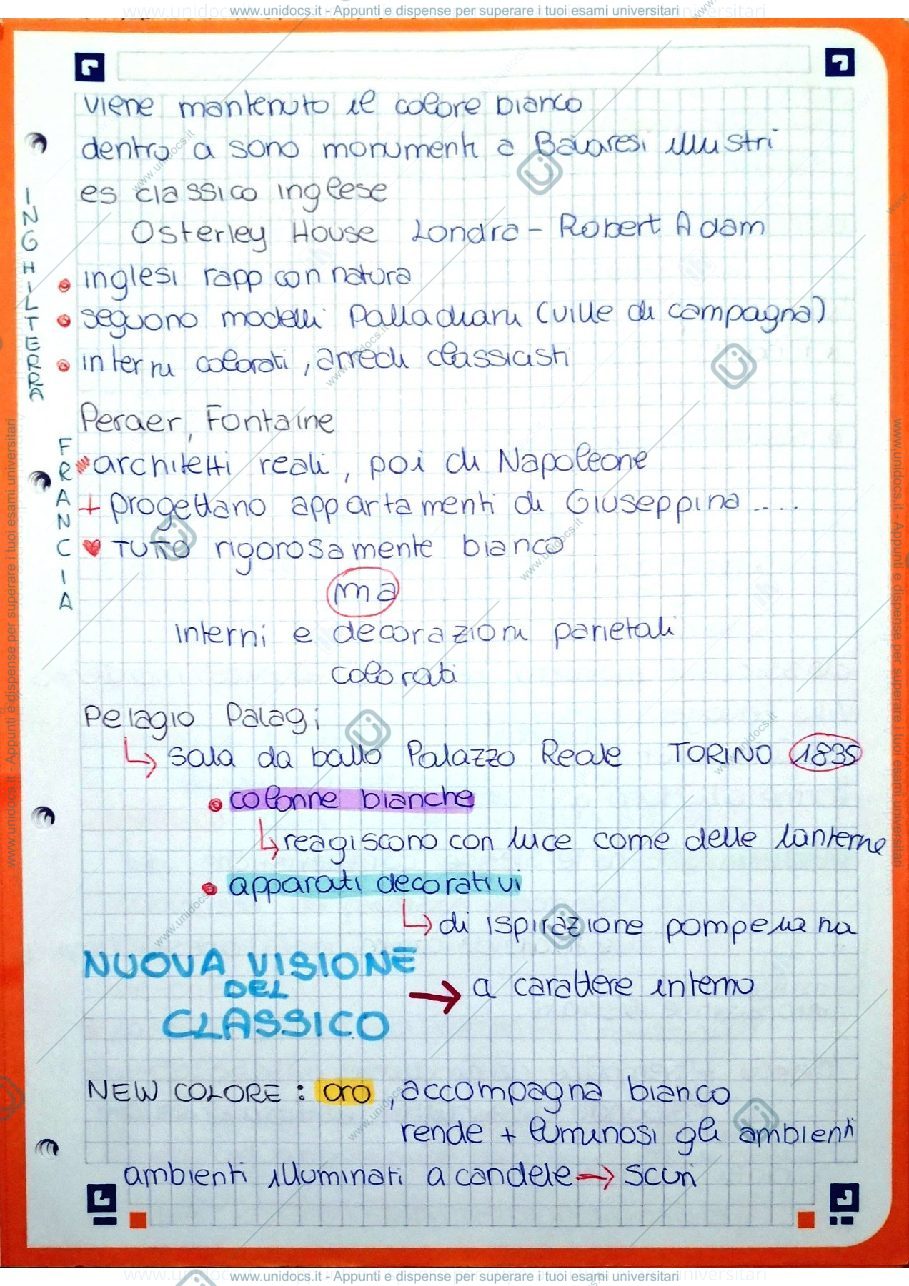 www.unidocs.it - Appunti e dispense per superare i tuoi esami universitari
viene mantenuto il colore bianco
dentro ci sono monumenti a Bavaresi illustri
es classico inglese
Osterley House Londra - Robert Adam
INGHILTERRA
• inglesi rapp con natura
• seguono modelli Palladiani (ville di campagna)
• interni colorati, arredi classicisti
Peraer, Fontaine
FRANCIA
architetti reali, poi di Napoleone
+ progettano appartamenti di Giuseppina....
♥ TUTTO rigorosamente bianco
ma
interni e decorazioni parietali
colorati
Pelagio Palagi
↳ sala da ballo Palazzo Reale TORINO 1835
• colonne bianche
↳ reagiscono con luce come delle lanterne
• apparati decorativi
↳ di ispirazione pompeiana
NUOVA VISIONE
DEL
CLASSICO
→ a carattere interno
NEW COLORE : oro, accompagna bianco
rende + luminosi gli ambienti
ambienti illuminati a candele → scuri
www.unidocs.it - Appunti e dispense per superare i tuoi esami universitari